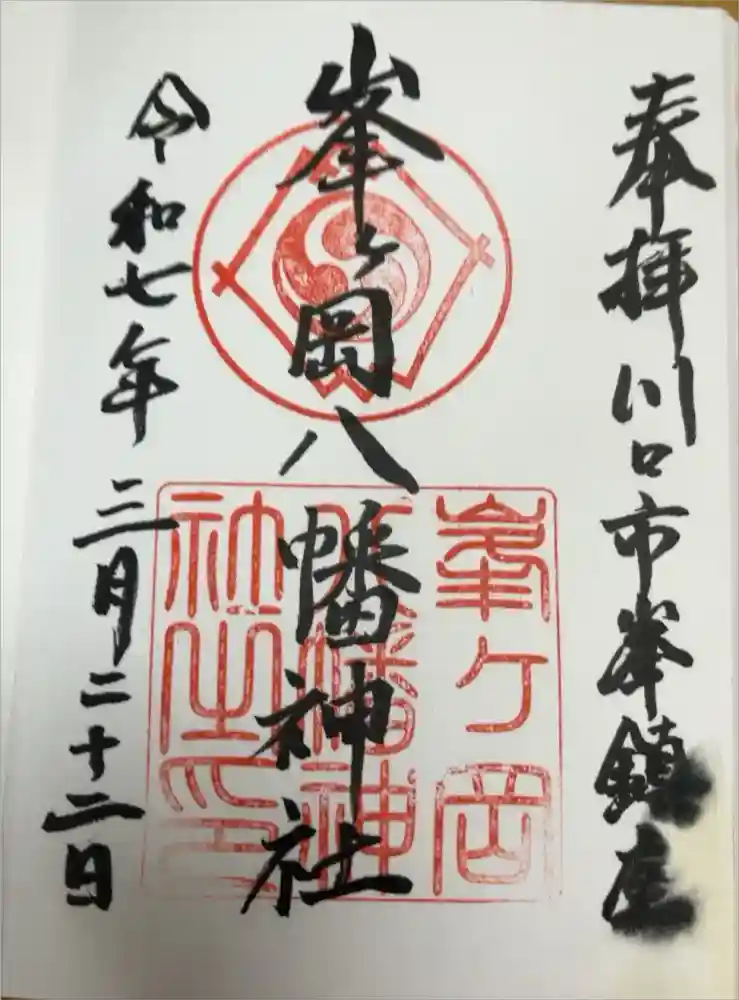 奉拝 川口市峯鎮座
峯ヶ岡八幡神社
令和七年 三月二十二日
峯ヶ岡
八幡神
社之印